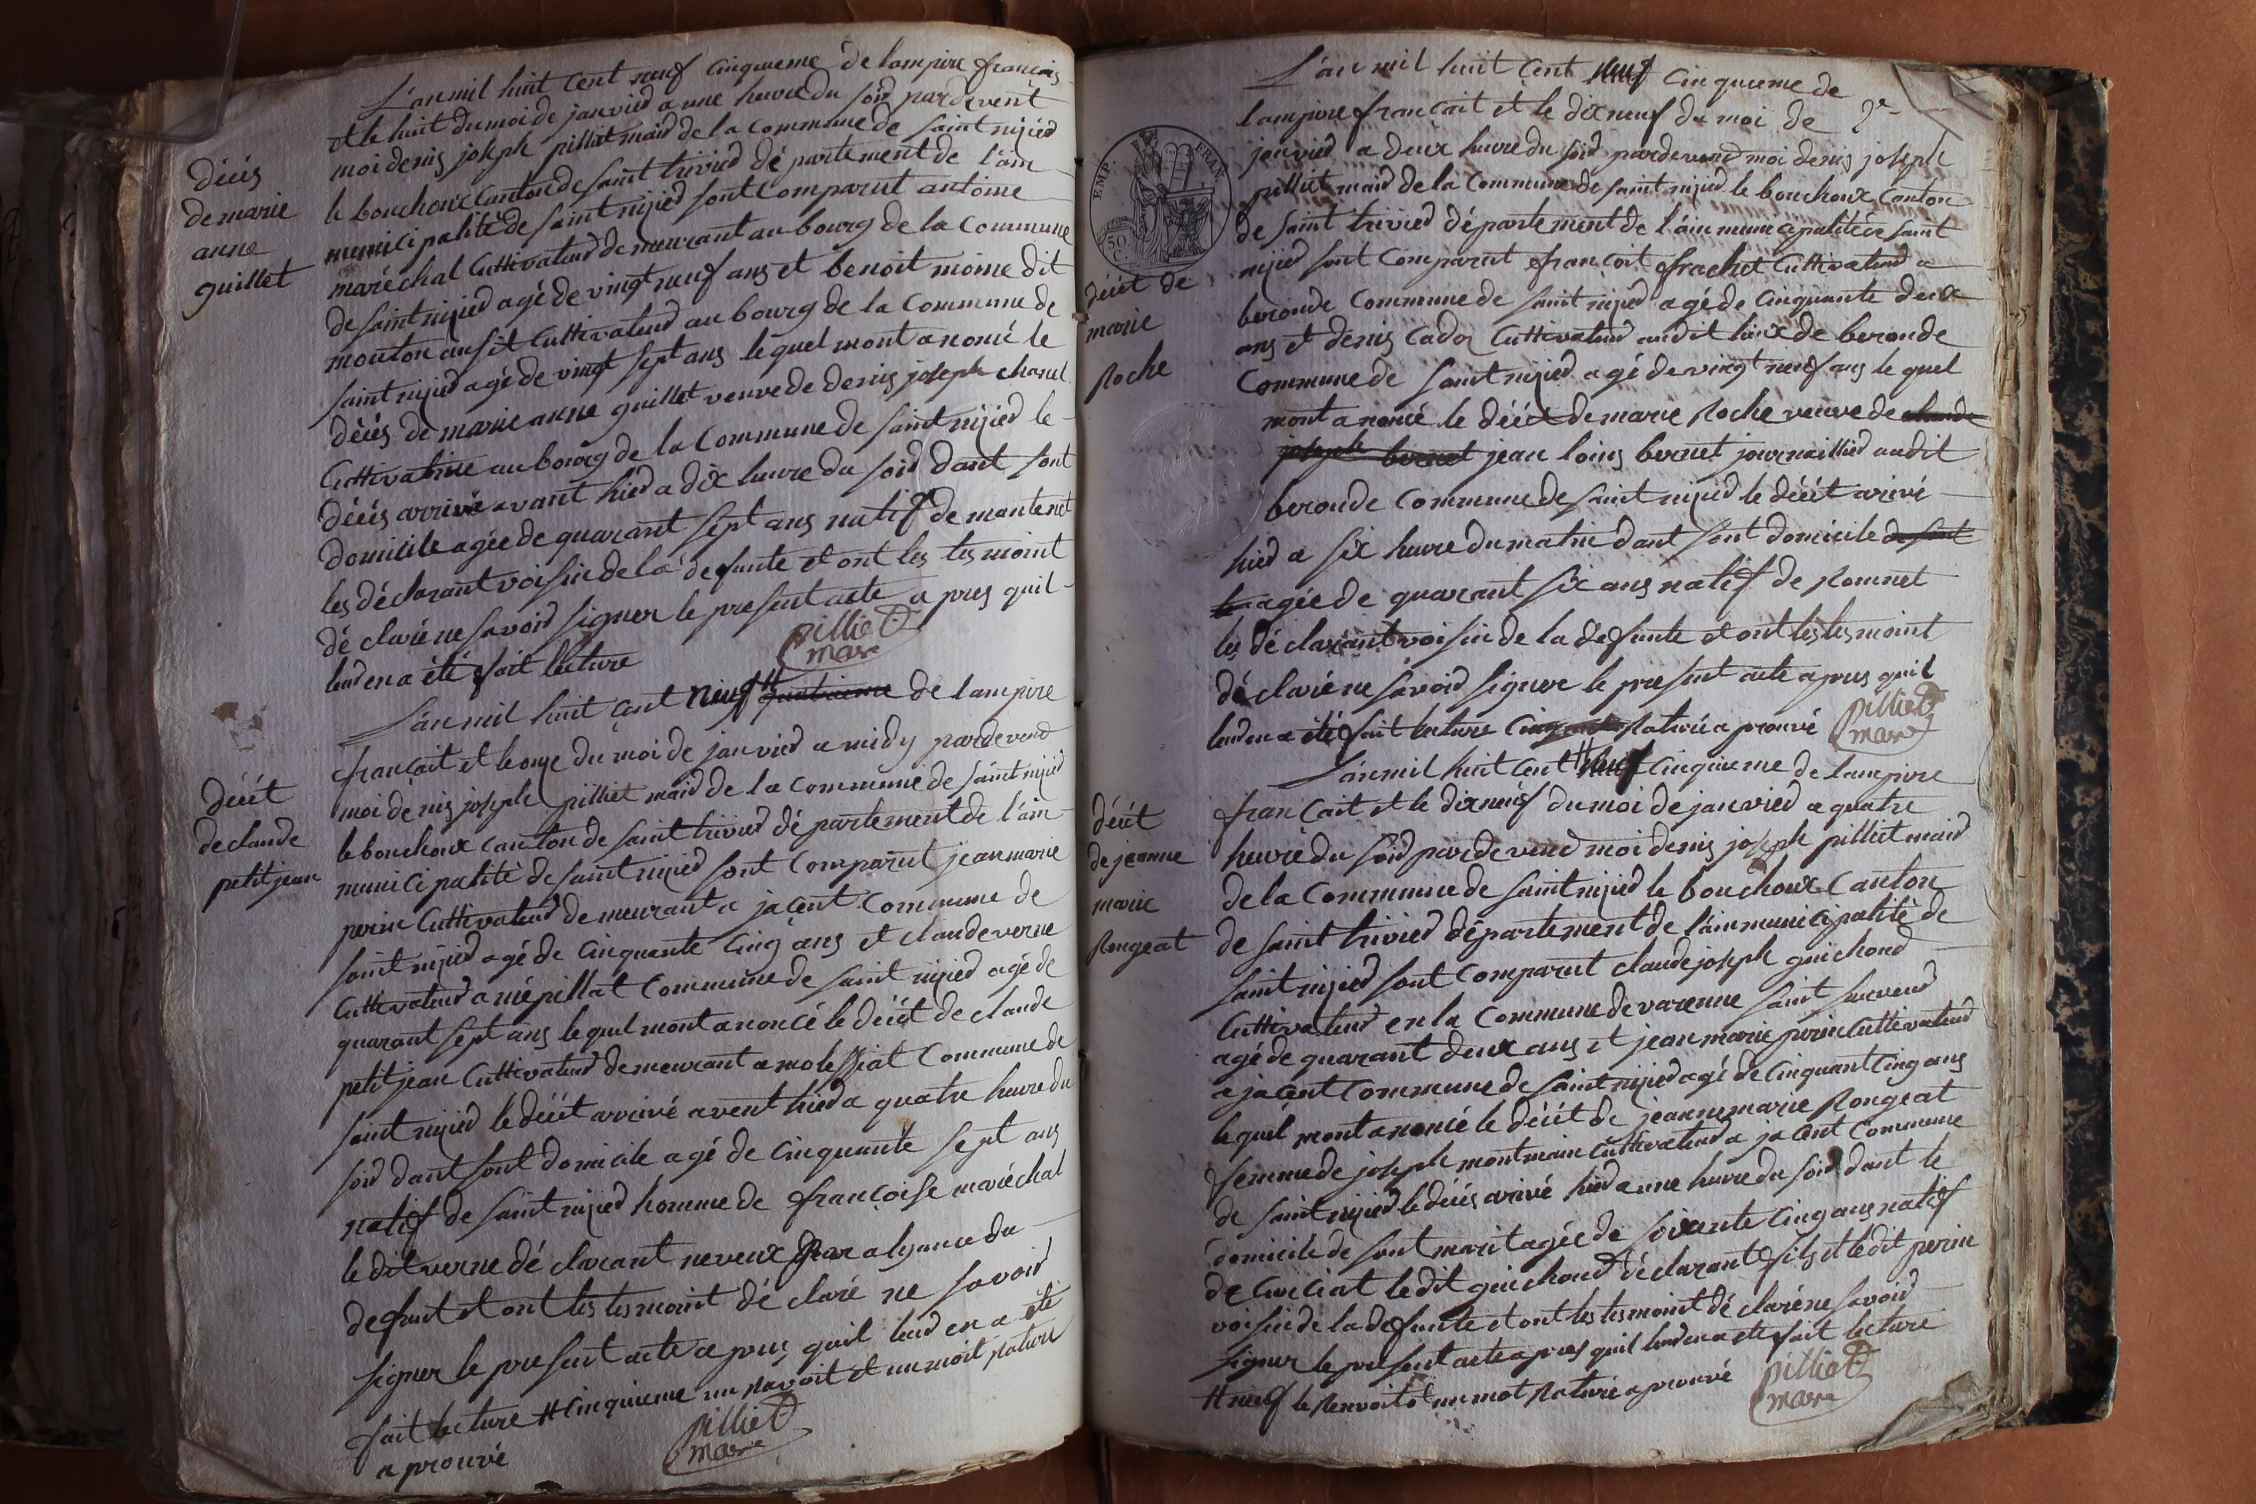 L'an mil huit cent neuf cinquieme de lampire francais
et le huit du moi de janvied a une heure du soid pardevent
moi denis joseph pilliet maid de la commune de saint nijied
le bouchoux canton de saint trivied département de l'ain
municipalité de saint nijied sont comparut antoine
maréchal cuttivateud demeurant au bourg de la commune
de saint nijied agé de vingt neuf ans et benoit moine dit
mouton ausit cuttivateud au bourg de la commune de
saint nijied agé de vingt sept ans le quel mont anoncé le
décés de marie anne guillet veuve de denis joseph chanel
cuttivatrice au bourg de la commune de saint nijied le
décés arrivé avant hied a dix heure du soid dant sont
domicile agée de quarant sept ans natif de mantenet
les déclarant voisin de la defunte et ont les tesmoint
déclaré ne savoid signer le present acte a pres quil
leud en a été fait lecture
pilliet
mare
décés
de marie
anne
guillet
L'an mil huit cent neuf # quatrieme de lampire
francait et le onze du moi de janvied a midy pardevend
moi denis joseph pilliet maid de la commune de saint nijied
le bouchoux canton de saint trivied département de l'ain
municipalité de saint nijied sont comparut jean marie
perin cuttivateud demeurant a jacent commune de
saint nijied agé de cinquante cinq ans et claude verne
cuttivateud a mépillat commune de saint nijied agé de
quarant sept ans le quel mont anoncé le décét de claude
petitjean cuttivateud demeurant a molessiat commune de
saint nijied le décét arrivé avent hied a quatre heure du
soid dant sont domicile agé de cinquante sept ans
natif de saint nijied homme de françoise maréchal
le dit verne déclarant neveux par alyance du
defunt et ont les tesmoint déclaré ne savoid
signer le present acte a pres quil leud en a été
fait lecture # cinquieme un ravoit et un moit rature
a prouvé
pilliet
mare
décét
de claude
petitjean
L'an mil huit cent neuf cinquieme de
lampire francait et le dix neuf du moi de
janvied a deux heure du soid pardevend moi denis joseph
pilliet maid de la commune de saint nijied le bouchoux canton
de saint trivied département de l'ain municipalité de saint
nijied sont comparut francoit frachet cuttivateud a
beronde commune de saint nijied agé de cinquante deux
ans et denis cadoz cuttivateud audit lieux de beronde
commune de saint nijied agé de vingt neuf ans le quel
mont anoncé le décét de marie Roche veuve de claude
joseph bernet jean loius bernet journaillied audit
beronde commune de saint nijied le décét arivé
hied a six heure du matin dant sont domicile
agée de quarant six ans natif de Romnet
les déclarant voisin de la defunte et ont les tesmoint
déclaré ne savoid signer le present acte apres quil
leud en a été fait lecture cinq mots Raturé aprouvé
pilliet
mare
EMP. FRAN.
50 C.
décét de
marie
Roche
L'an mil huit cent # neuf cinquieme de lampire
francait et le dix neuf du moi de janvied a quatre
heure du soid pardevend moi denis joseph pilliet maid
de la commune de saint nijied le bouchoux canton
de saint trivied département de l'ain municipalité de
saint nijied sont comparut claude joseph guichond
cuttivateud en la commune de varenne saint sauveud
agé de quarant deux ans et jean marie perin cuttivateud
a jacent commune de saint nijied agé de cinquant cinq ans
le quel mont anoncé le décét de jeanne marie Rongeat
femme de joseph montmain cuttivateud a jacent commune
de saint nijied le décés arivé hied a une heure du soid dant le
domicile de sont marit agée de soixante cinq ans natif
de cuiciat le dit guichond déclarant fils et le dit perin
voisin de la defunte et ont les tesmoint déclaré ne savoid
signer le present acte apres quil leud en a été fait lecture
# neuf le Renvoit et un mot Raturé aprouvé
pilliet
mare
décét
de jeanne
marie
Rongeat